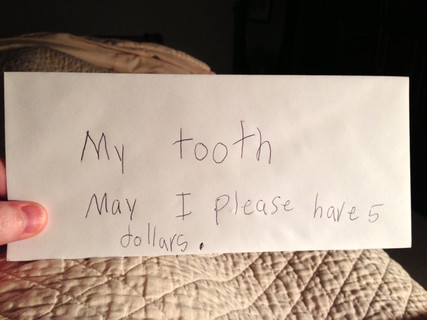 My tooth
May I please have 5
dollars.